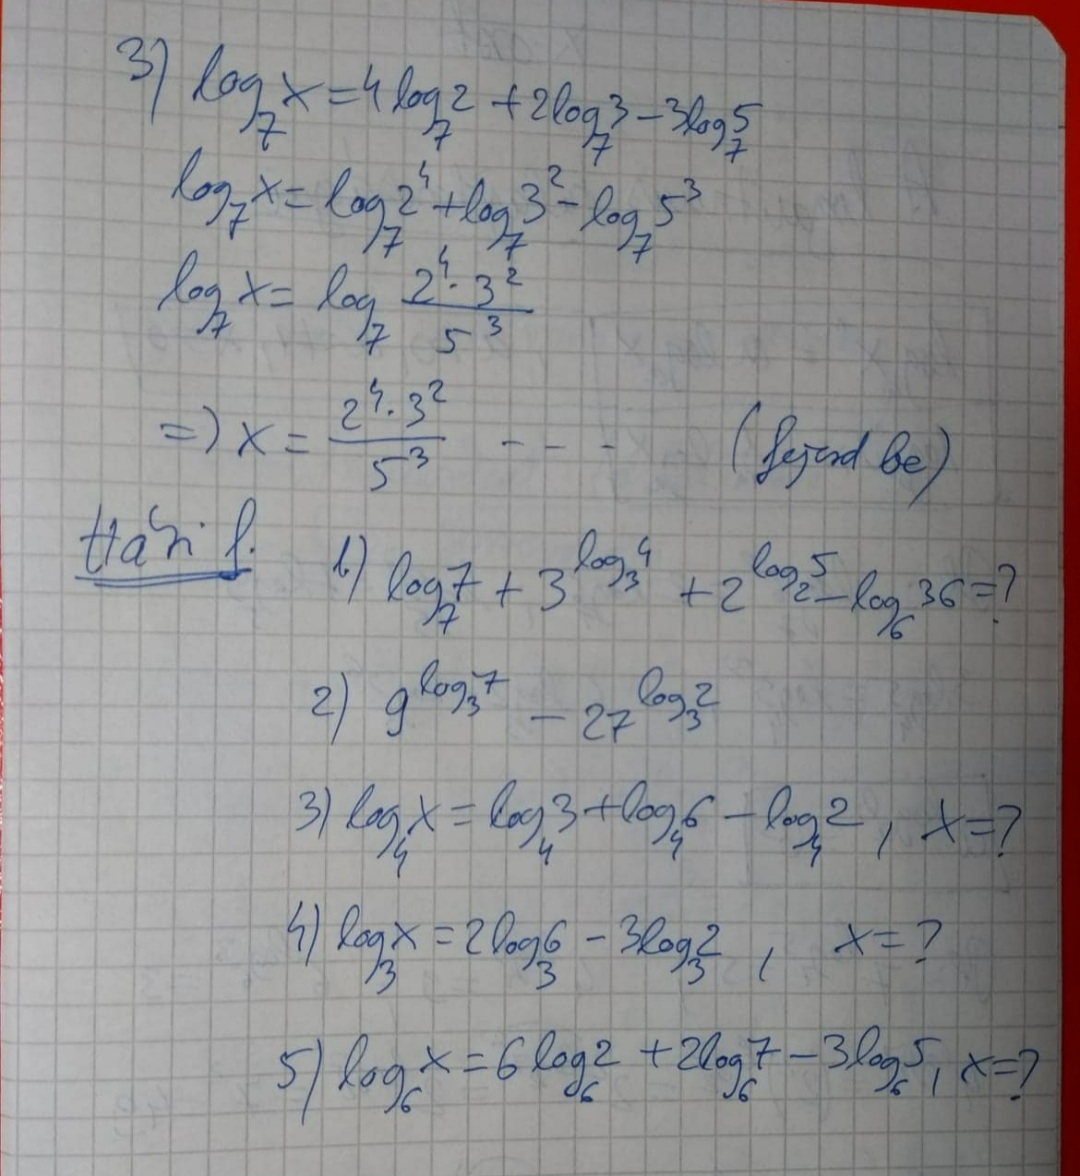 3) log₇x = 4log₇2 + 2log₇3 - 3log₇5
log₇x = log₇2⁴ + log₇3² - log₇5³
log₇x = log₇ (2⁴·3²)/5³
=> x = (2⁴·3²)/5³ - - - (fejezd be)
Házi f. 1) log₇7 + 3^(log₃4) + 2^(log₂5) - log₆36 = ?
2) 9^(log₃7) - 27^(log₃2)
3) log₄x = log₄3 + log₄6 - log₄2, x = ?
4) log₃x = 2log₃6 - 3log₃2, x = ?
5) log₆x = 6log₆2 + 2log₆7 - 3log₆5, x = ?